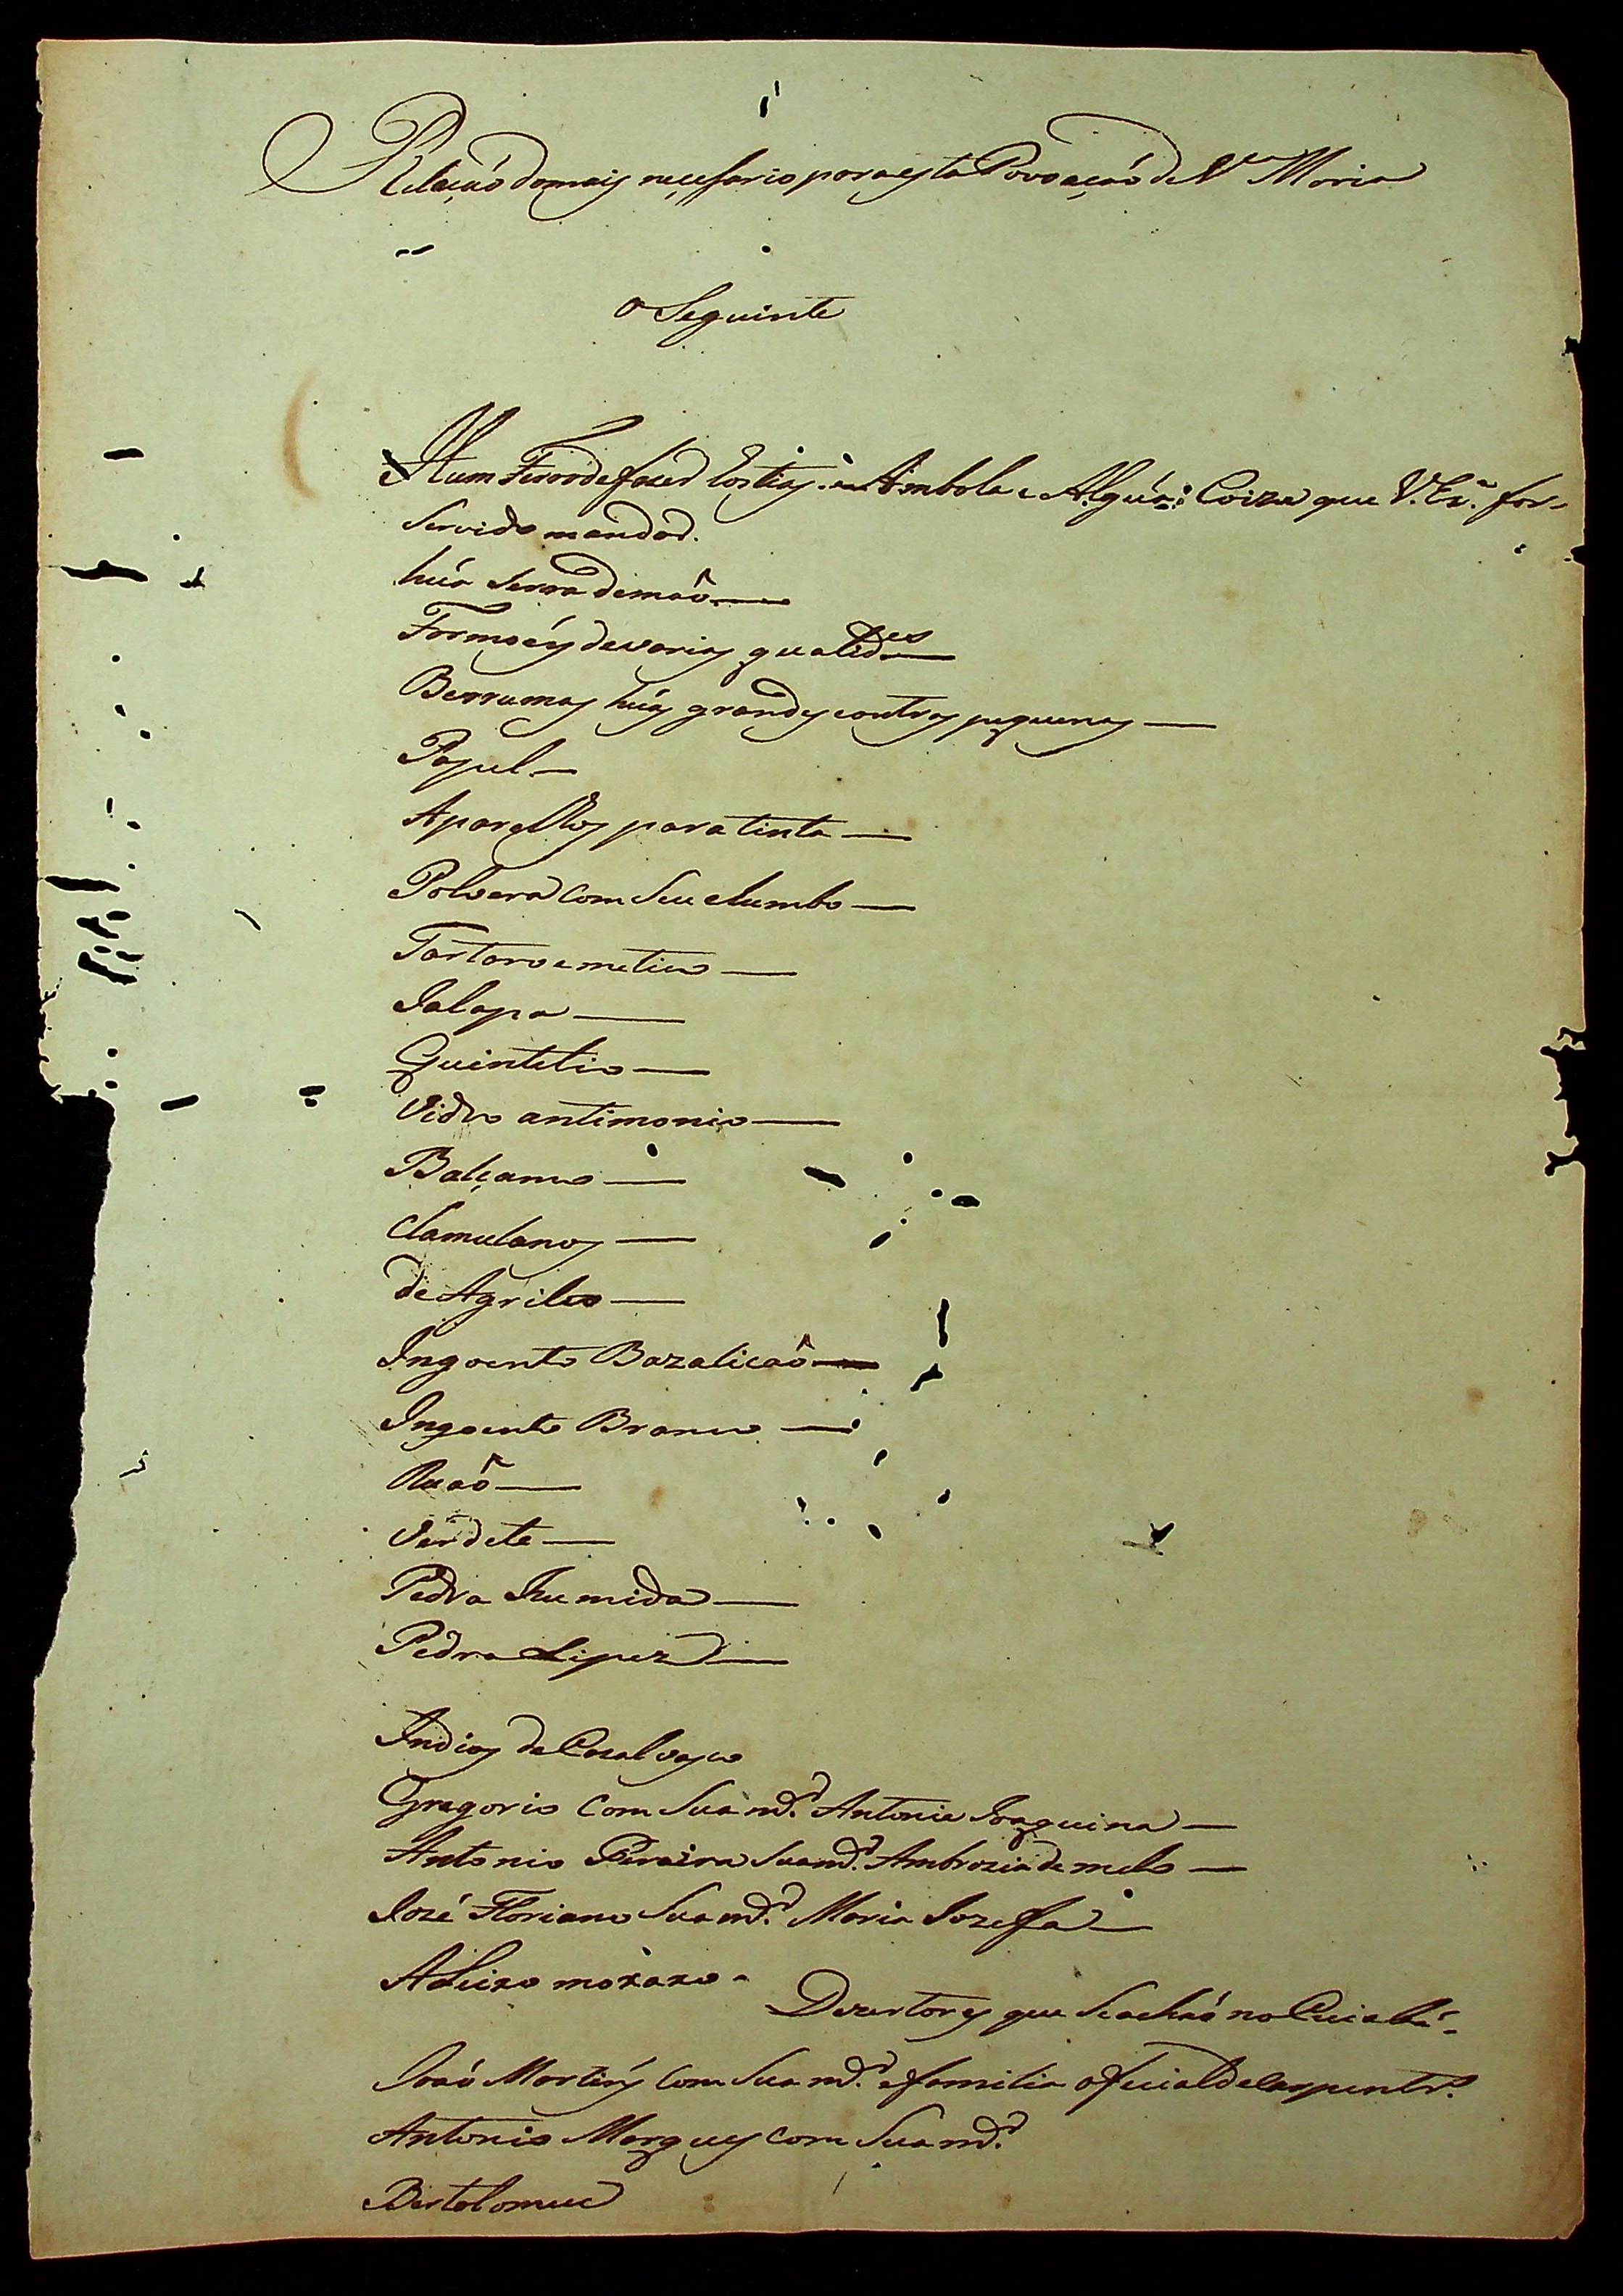 Relação domais necessario para esta Povoação de V.ª Maria
o Seguinte
Hum Ferro de fazer Ostias: Ambola e Algúa: Coiza que V. Ex.ª for
Servido mandar.
húa Serra de maô
Formoéis de varias qualid.es
Berrumas húas grandes e outras pequenas
Papel
Aparelhos para tinta
Polvera com Seu chumbo
Tartaro emetico
Jalapa
Quintilio
Vidro antimonio
Balçamo
Clamulanos
de Agrilco
Ingoento Bazalicaô
Ingoento Branco
Ruaô
Verdete
Pedra Humida
Pedra Lipez
Indios de Cazalvasco
Gregorio Com Sua m.er Antonia Joaquina
Antonio Pereira Sua m.er Ambrozia de melo
Jozé Floriano Sua m.er Maria Jozefa
Aleixo
Dezertores que Se achaõ no Cuiabá
Joaõ Martins Com Sua m.er e familia oficial de Carpintr.º
Antonio Marques com Sua m.er
Bertolomeu